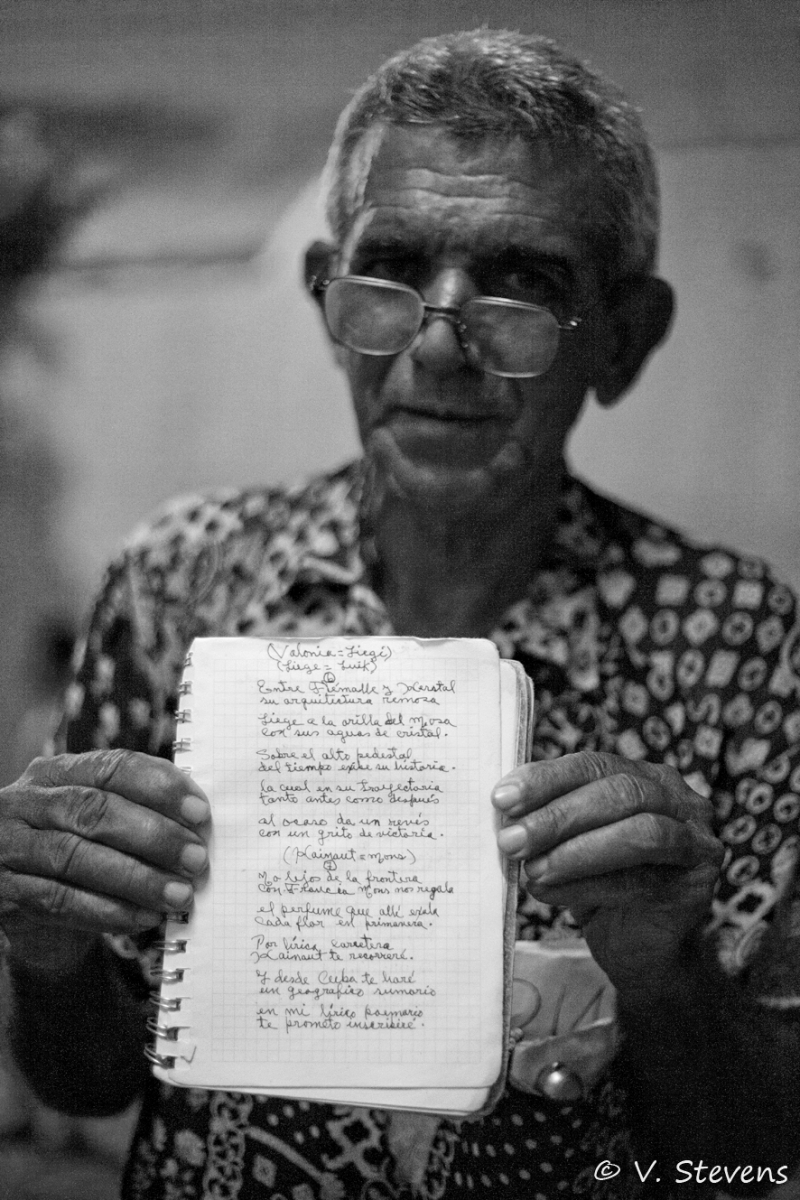 (Valonia = Liegi)
(Liege = Luik)
1
Entre Flémalle y Herstal
su arquitectura remosa
Liege a la orilla del Mosa
con sus aguas de cristal.
Sobre el alto pedestal
del tiempo exibe su historia.
La cual en su trayectoria
tanto antes como después
al ocaso da un revés
con un grito de victoria.
(Hainaut = Mons)
No lejos de la frontera
con Francia Mons nos regala
el perfume que allí exala
cada flor en primavera.
Por lírica carretera
Hainaut te recorreré.
Y desde Cuba te haré
un geografico sumario
en mi lírico poemario
te prometo inscribiré.
© V. Stevens